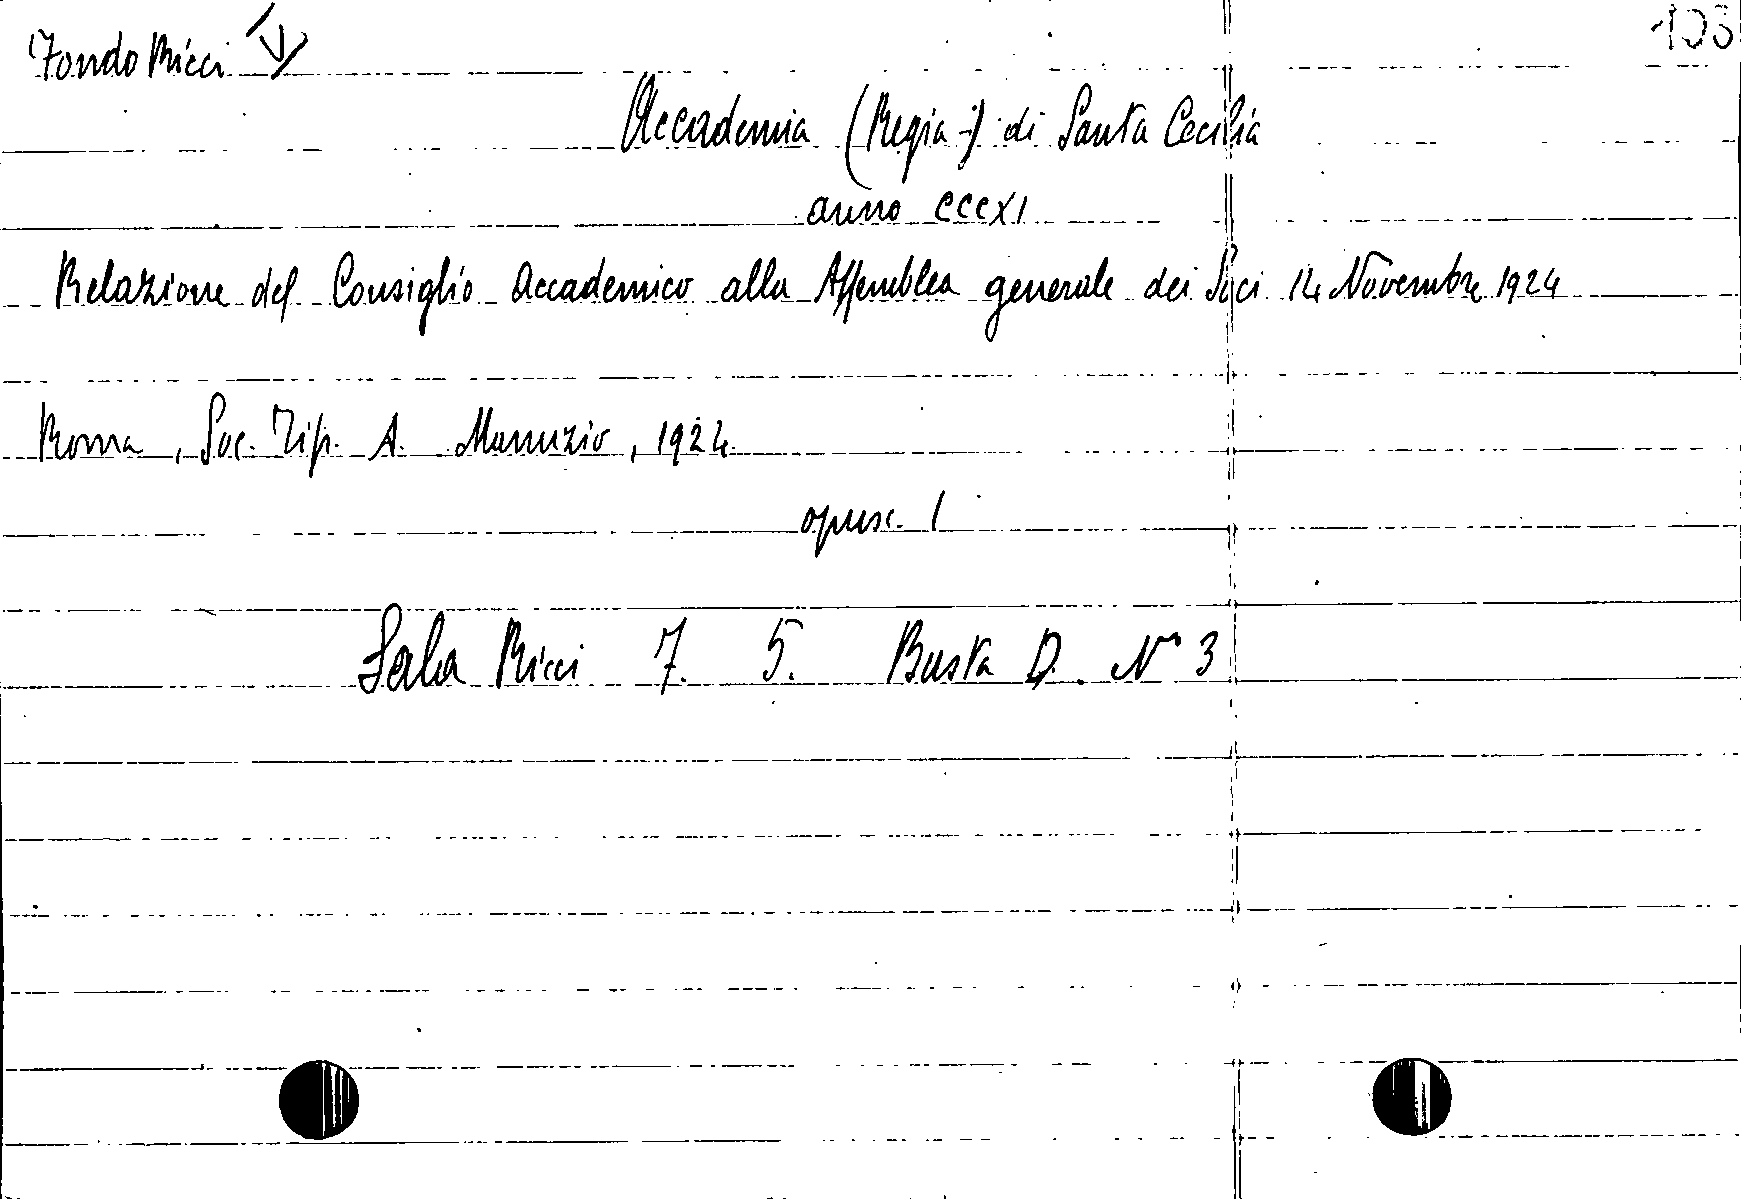 Fondo Ricci
103
Accademia (Regia -) di Santa Cecilia
anno CCCXI
Relazione del Consiglio Accademico alla Assemblea generale dei Soci 14 Novembre 1924
Roma, Soc. Tip. A. Manuzio, 1924
opusc. 1
Sala Ricci 7. 5. Busta D. N° 3